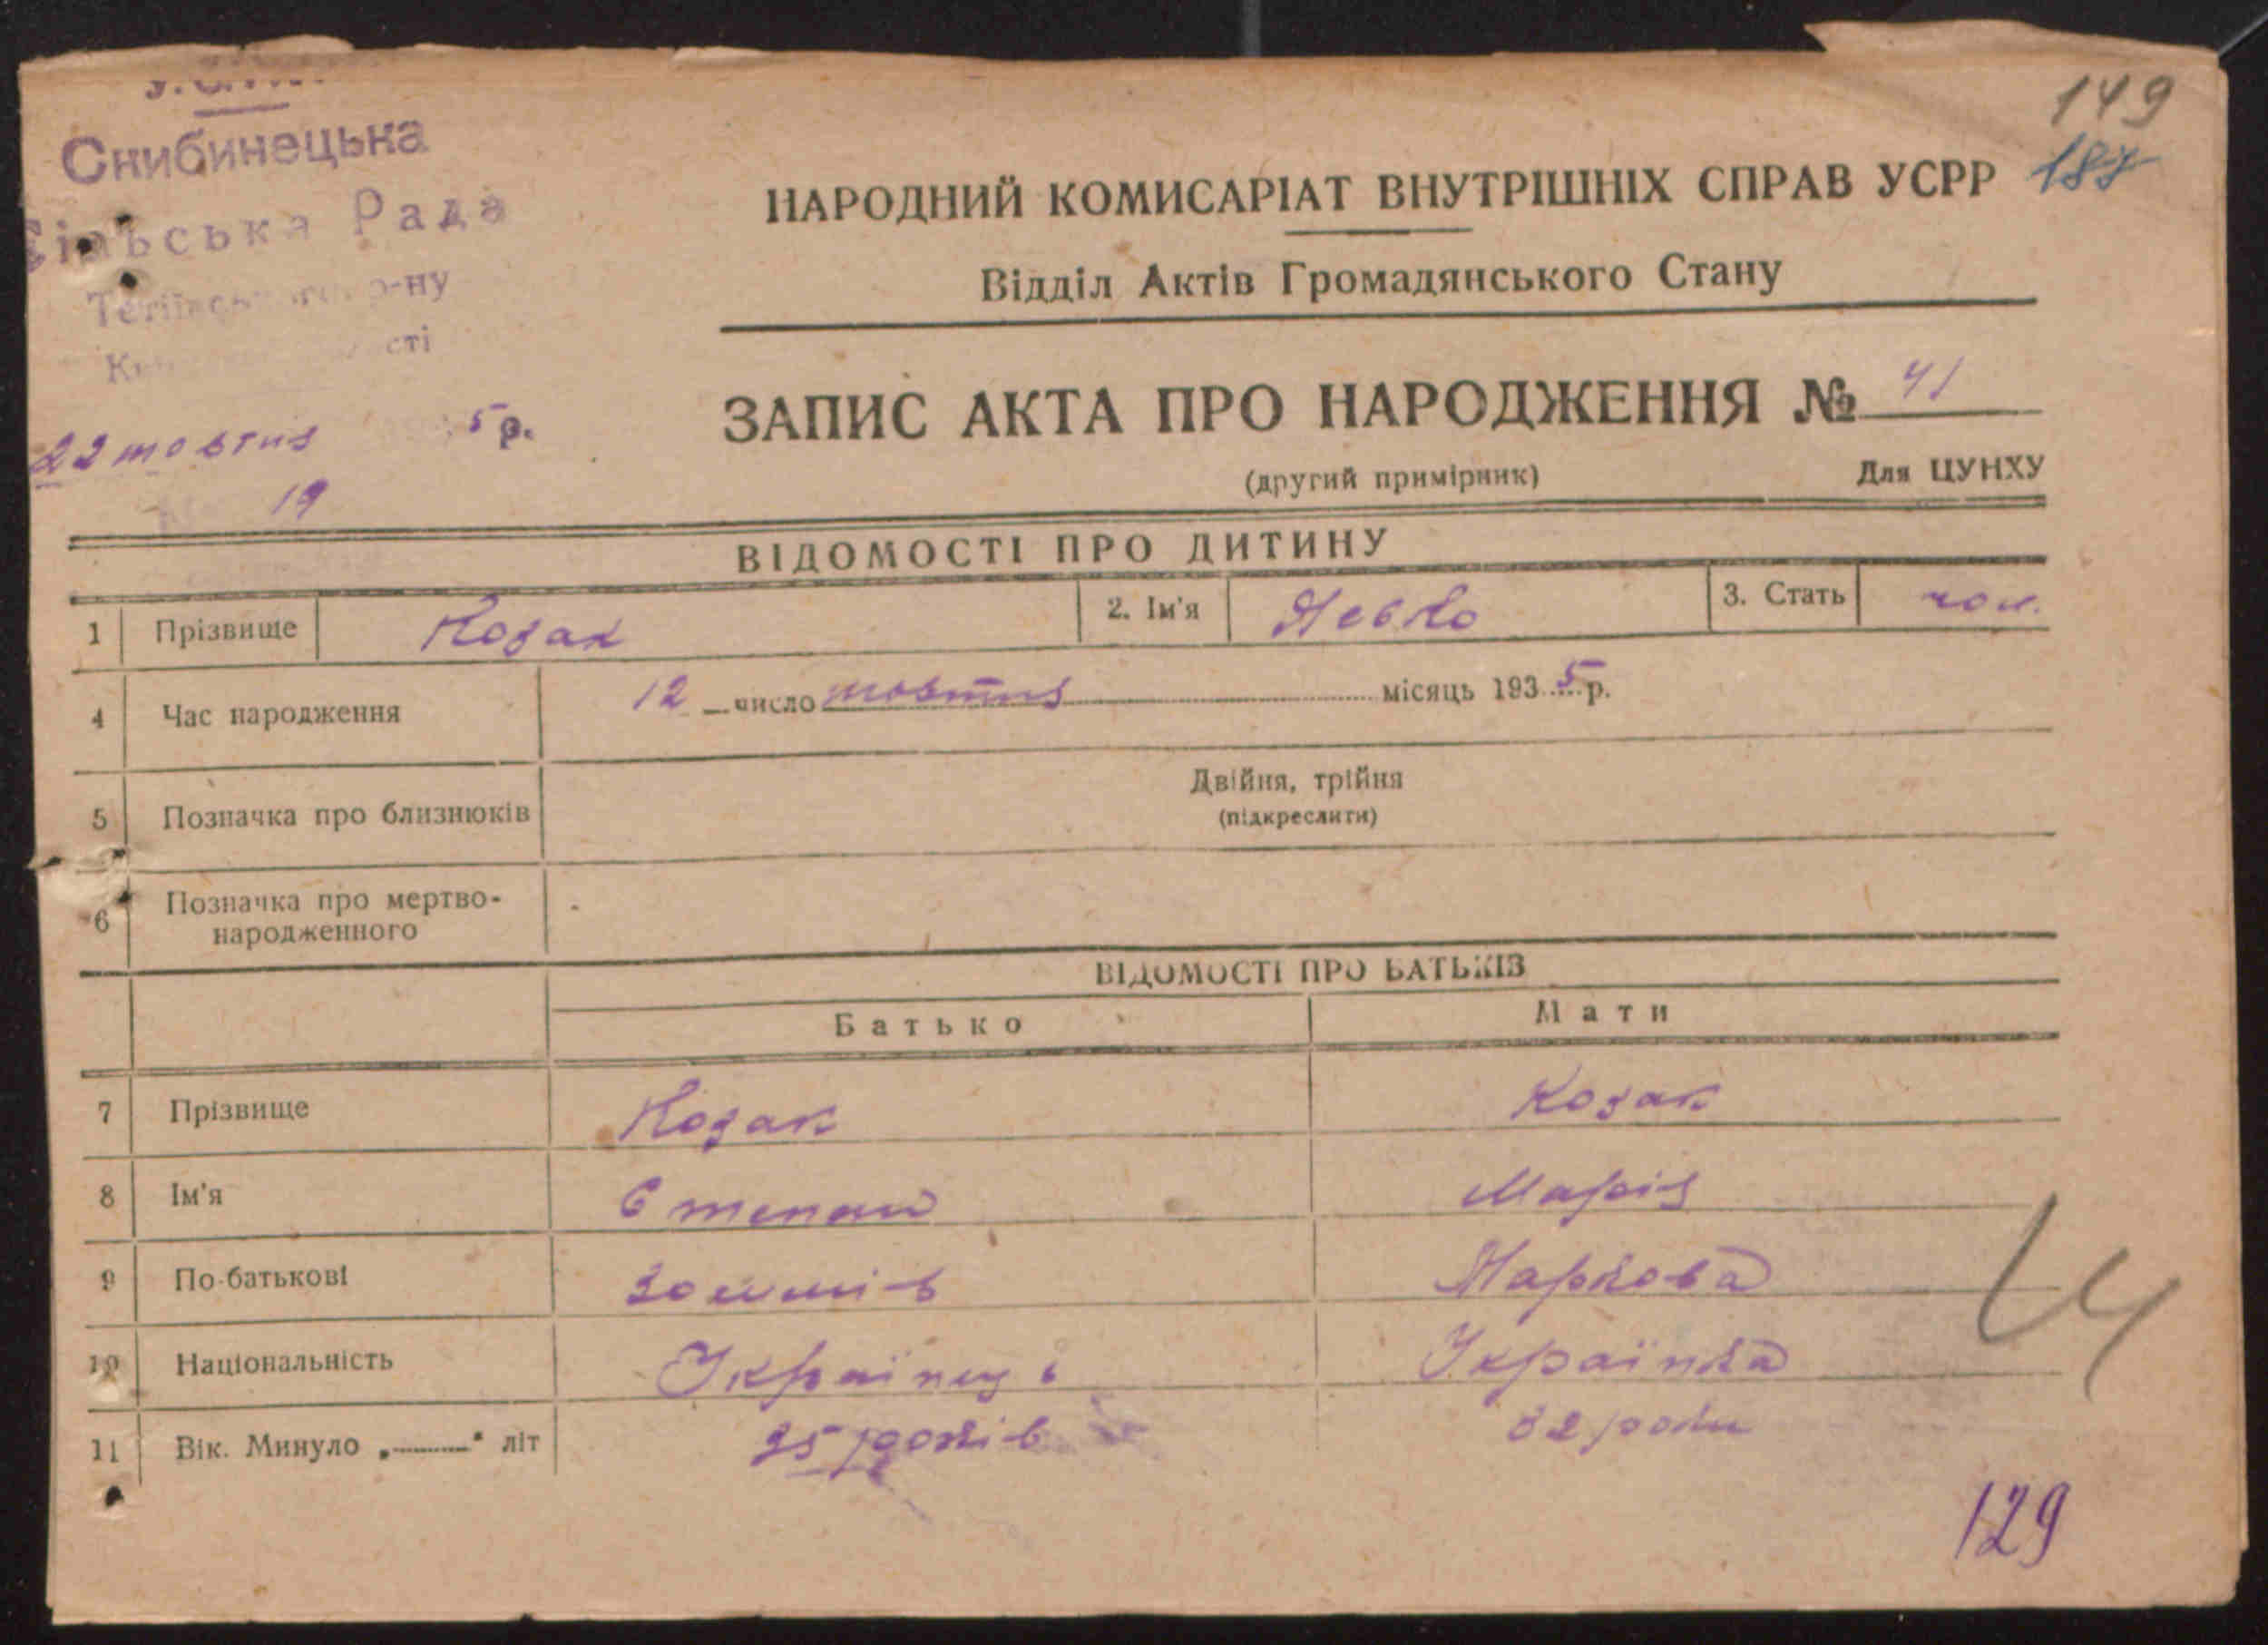 149
187
Снибинецька
Сільська Рада
р-ну
22 жовтня 5 р.
19
НАРОДНИЙ КОМИСАРІАТ ВНУТРІШНІХ СПРАВ УСРР
Відділ Актів Громадянського Стану
ЗАПИС АКТА ПРО НАРОДЖЕННЯ № 41
(другий примірник) Для ЦУНХУ
ВІДОМОСТІ ПРО ДИТИНУ
1 Прізвище Козак 2. Ім'я Левко 3. Стать чол.
4 Час народження 12 число жовтня місяць 1935 р.
5 Позначка про близнюків Двійня, трійня
(підкреслити)
6 Позначка про мертво-
народженного
ВІДОМОСТІ ПРО БАТЬКІВ
Батько Мати
7 Прізвище Козак Козак
8 Ім'я Степан Марія
9 По-батькові Маркова
10 Національність Українець Українка
11 Вік. Минуло „ “ літ 35 років 32 роки
129